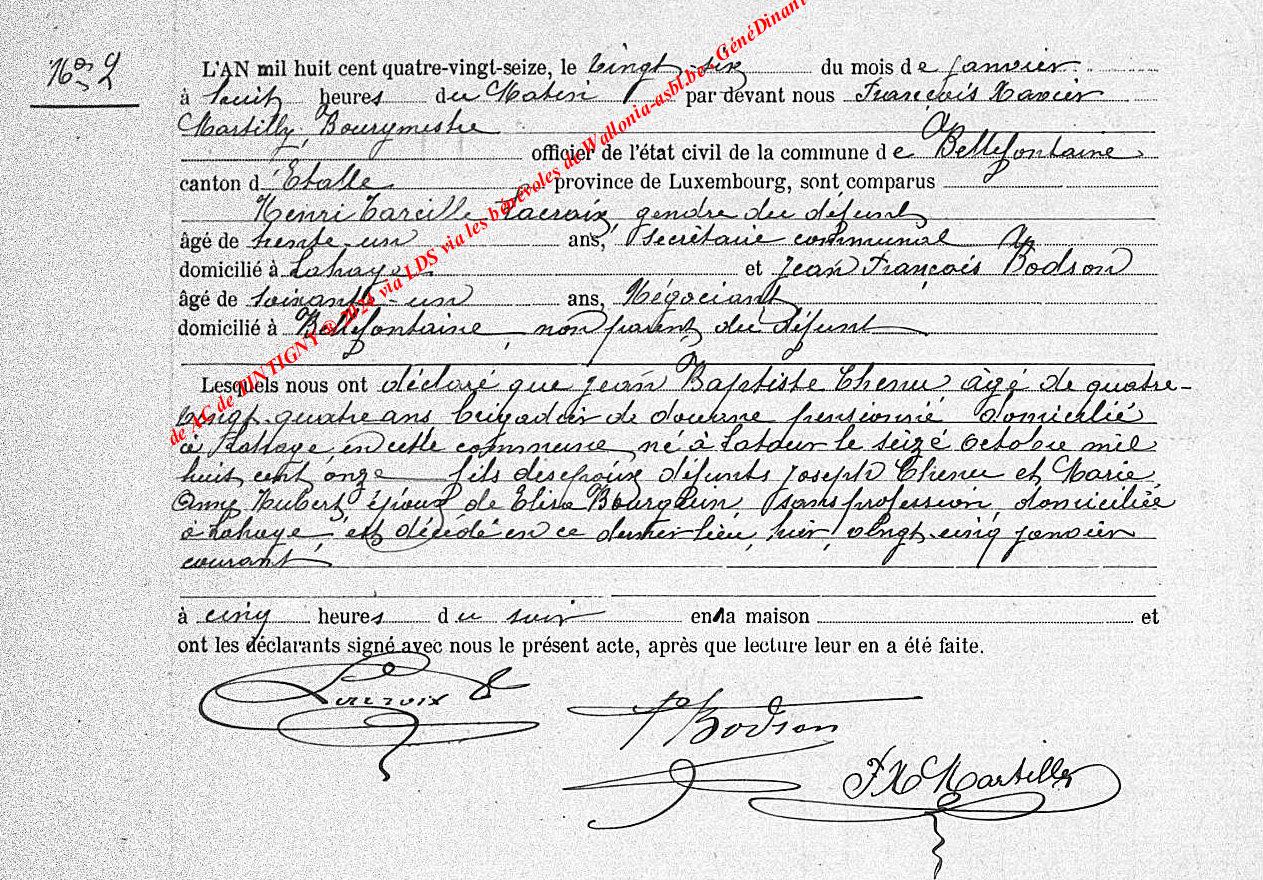 Nos 2
L'AN mil huit cent quatre-vingt-seize, le vingt-six du mois de janvier
à huit heures du Matin par devant nous François Xavier
Martilly, Bourgmestre
officier de l'état civil de la commune de Bellefontaine
canton d'Etalle province de Luxembourg, sont comparus
Henri Lacroix, gendre du défunt
âgé de trente-un ans, Secrétaire communal
domicilié à Lahaye et Jean François Bodson
âgé de soixante-un ans, Négociant
domicilié à Bellefontaine, non parent du défunt
Lesquels nous ont déclaré que Jean Baptiste Thenu âgé de quatre-
vingt-quatre ans brigadier de douane pensionné domicilié
à Lahaye, en cette commune, né à Latour le seize Octobre mil
huit cent onze fils des époux défunts Joseph Thenu et Marie
Anne Hubert, époux de Elise Bourguin, sans profession, domiciliée
à Lahaye, est décédé en ce dernier lieu, hier, vingt-cinq janvier
courant
à cinq heures du soir en la maison et
ont les déclarants signé avec nous le présent acte, après que lecture leur en a été faite.
Lacroix
Bodson
FX Martilly
de AC de TINTIGNY © 2024 via LDS via les bénévoles de Wallonia-asbl.be - GénéDinant